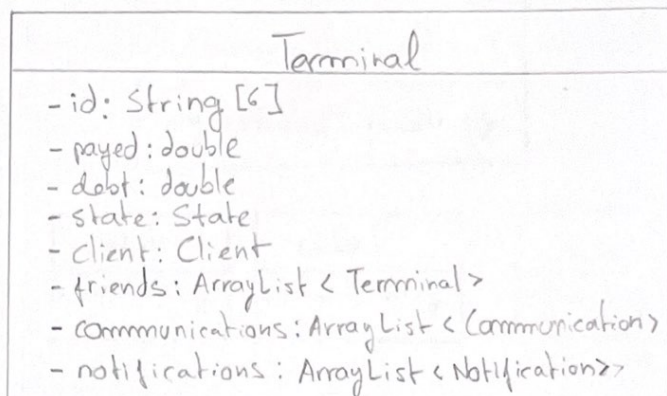 Terminal
- id: String [6]
- payed: double
- debt: double
- state: State
- client: Client
- friends: ArrayList < Terminal >
- communications: ArrayList < Communication >
- notifications: ArrayList < Notification >